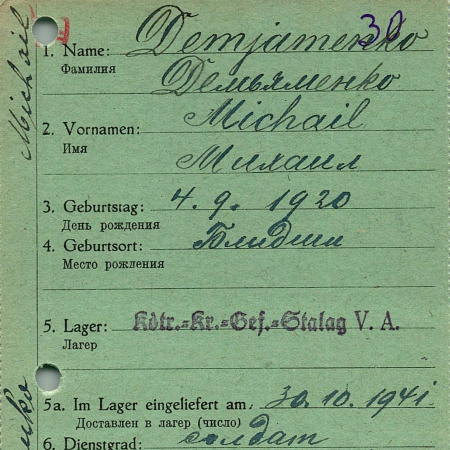 30
1. Name: Demjamenko
Фамилия Демьяменко
2. Vornamen: Michail
Имя Михаил
3. Geburtstag: 4. 9. 1920
День рождения
4. Geburtsort:
Место рождения
5. Lager: Kdtr.=Kr.=Gef.=Stalag V. A.
Лагер
5a. Im Lager eingeliefert am: 30. 10. 1941.
Доставлен в лагер (число)
6. Dienstgrad: солдат
Michail